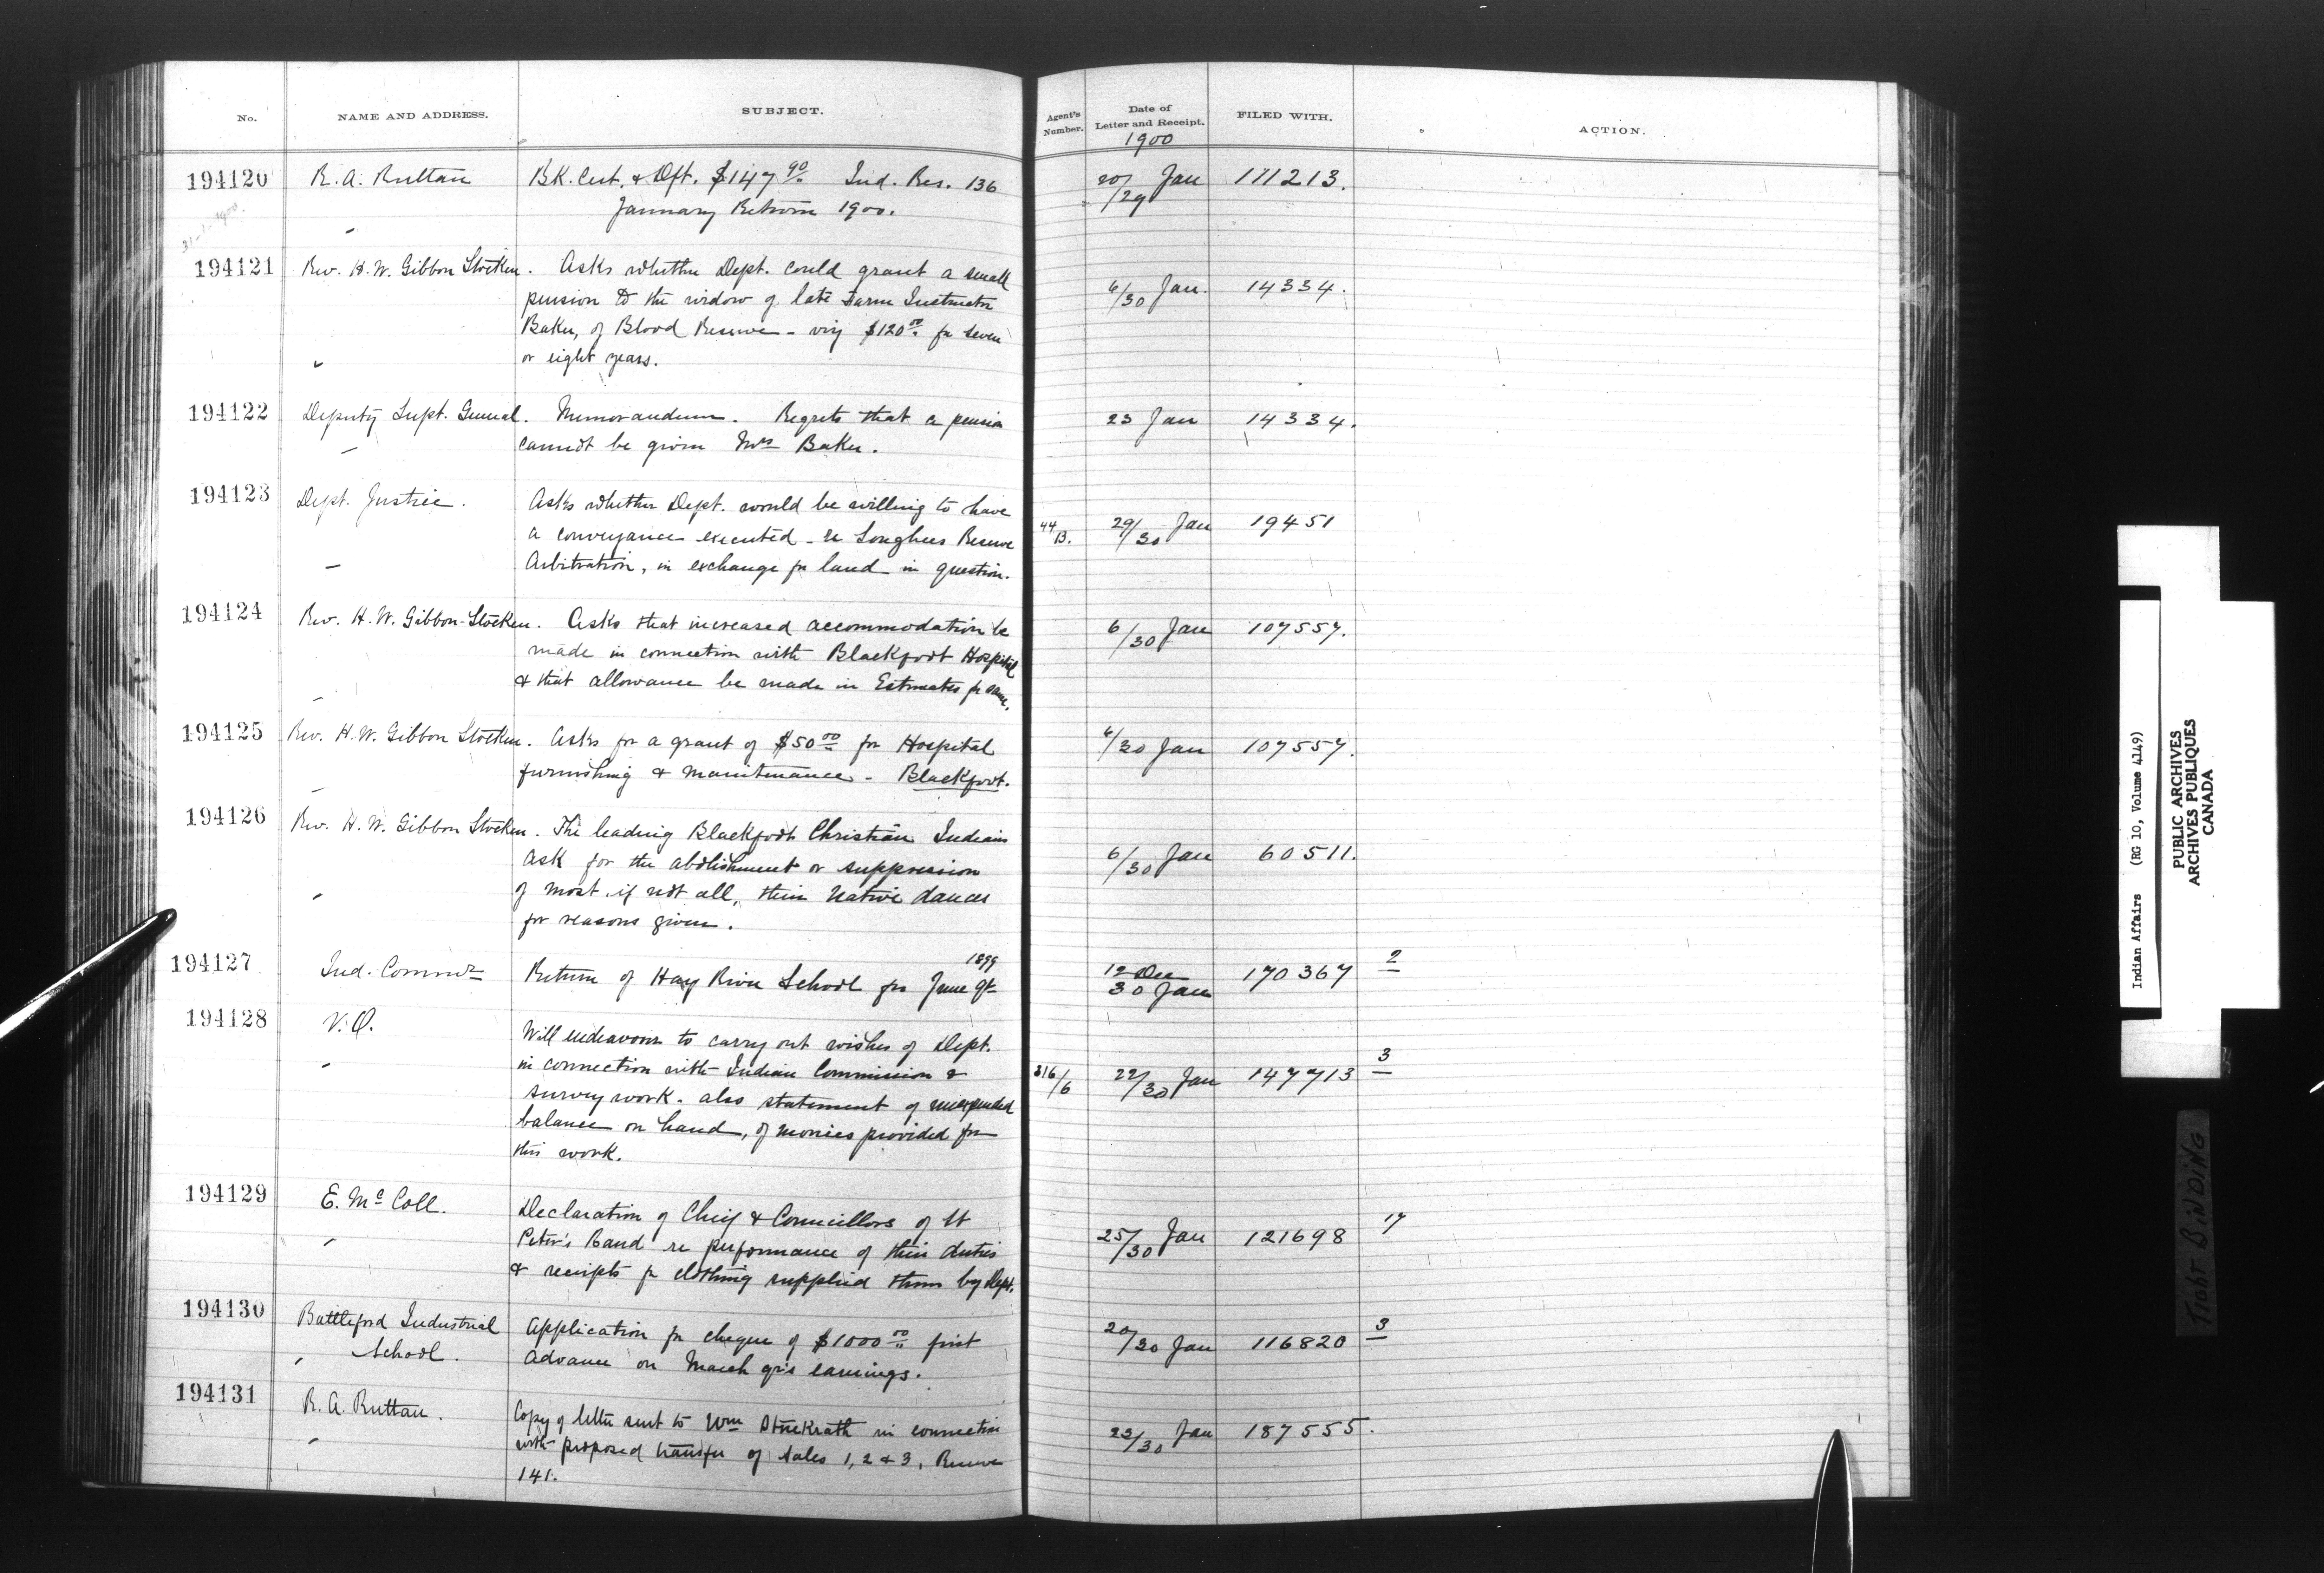 No. NAME AND ADDRESS. SUBJECT. Agent's Number. Date of Letter and Receipt. FILED WITH. ACTION.
1900
194120 R. A. Ruttan BK. Cert. & Dft. $147 90/.. Ind. Res. 136 20/29 Jan 111213.
January Return 1900.
31-1-1900.
194121 Rev. H. W. Gibbon Stocken. Asks whether Dept. could grant a small 6/30 Jan. 14334.
pension to the widow of late Farm Instructor
Baker, of Blood Reserve - viz $120 00 for seven
or eight years.
194122 Deputy Supt. General. Memorandum. Regrets that a pension 23 Jan 14334.
cannot be given Mrs Baker.
194123 Dept. Justice. Asks whether Dept. would be willing to have 44/13. 29/30 Jan 19451
a conveyance executed - re Songhees Reserve
Arbitration, in exchange for land in question.
194124 Rev. H. W. Gibbon-Stocken. Asks that increased accommodation be 6/30 Jan 107557.
made in connection with Blackfoot Hospital
& that allowance be made in Estimates for same.
194125 Rev. H. W. Gibbon Stocken. Asks for a grant of $50 00 for Hospital 6/30 Jan 107557.
furnishing & maintenance - Blackfoot.
194126 Rev. H. W. Gibbon Stocken. The leading Blackfoot Christian Indians 6/30 Jan 60511.
ask for the abolishment or suppression
of most, if not all, their Native dances
for reasons given.
194127 Ind. Commr Return of Hay River School for June qt 1899 12 Dec 30 Jan 170367 2
194128 V. O. Will endeavour to carry out wishes of Dept.
in connection with Indian Commission & 316/6 22/30 Jan 147713 3
survey work. also statement of unexpended
balance on hand, of monies provided for
this work.
194129 E. Mc Coll. Declaration of Chief & Councillors of St 25/30 Jan 121698 17
Peter's Band re performance of their duties
& receipts for clothing supplied them by Dept.
194130 Battleford Industrial School. Application for cheque of $1000 00 first 20/30 Jan 116820 3
Advance on March qr's earnings.
194131 R. A. Ruttan. Copy of letter sent to Wm Stuckrath in connection 23/30 Jan 187555.
with proposed transfer of Sales 1, 2 & 3, Reserve
141.
Indian Affairs (RG 10, Volume 4149)
PUBLIC ARCHIVES
ARCHIVES PUBLIQUES
CANADA
TIGHT BINDING